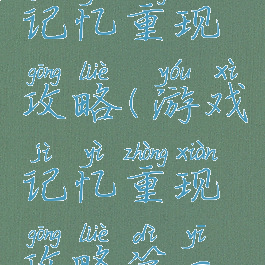 记忆重现
gōng lüè yóu xì
攻略(游戏
jì yì zhòng xiàn
记忆重现
gōng lüè dì yī